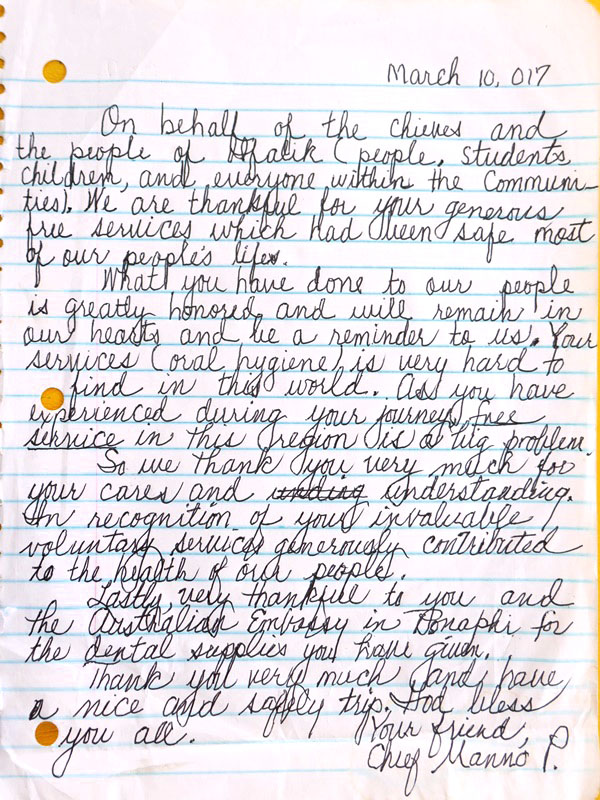 March 10, 017
On behalf of the chieves and
the people of Ifalik (people, students,
children, and everyone within the Communi-
ties). We are thankful for your generous
free services which had been safe most
of our people's lifes.
What you have done to our people
is greatly honored and will remain in
our hearts and be a reminder to us. Your
services (oral hygiene) is very hard to
find in this world. As you have
experienced during your journey, free
service in this region is a big problem.
So we thank you very much for
your cares and understanding.
In recognition of your invaluable
voluntary services generously contributed
to the health of our people.
Lastly, very thankful to you and
the Australian Embassy in Phonaphi for
the dental supplies you have given.
Thank you very much and have
a nice and safely trip. God bless
you all.
Your friend,
Chief Manno P.